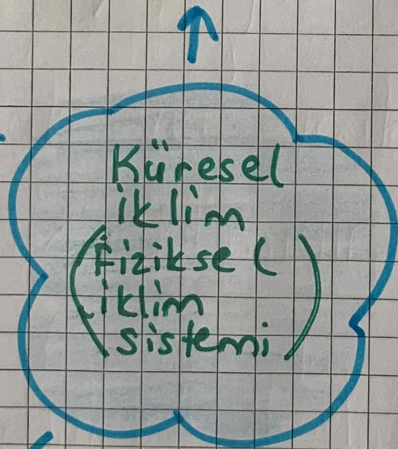 Küresel
iklim
(Fiziksel
iklim
sistemi)